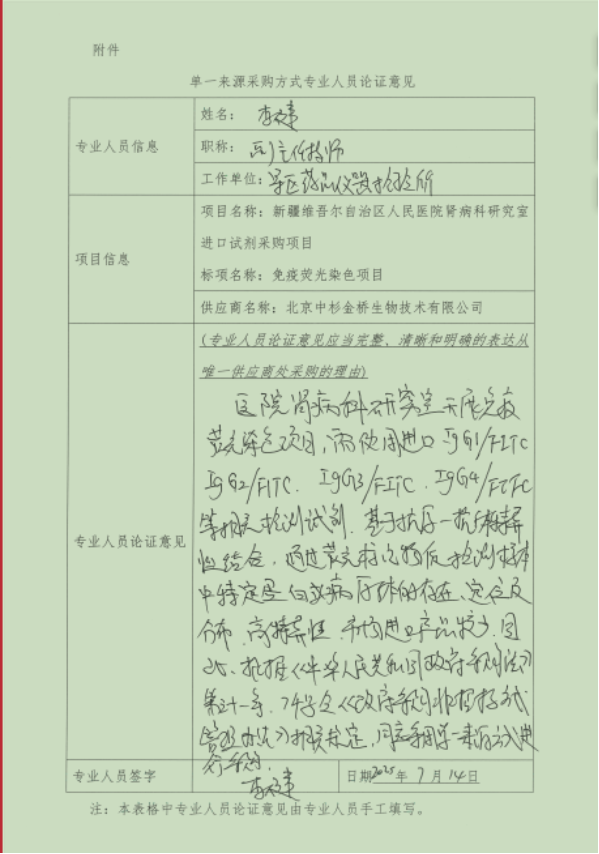 附件
单一来源采购方式专业人员论证意见
专业人员信息
姓名：
职称：副主任技师
工作单位：军区药品仪器检验所
项目信息
项目名称：新疆维吾尔自治区人民医院肾病科研究室
进口试剂采购项目
标项名称：免疫荧光染色项目
供应商名称：北京中杉金桥生物技术有限公司
专业人员论证意见
（专业人员论证意见应当完整、清晰和明确的表达从
唯一供应商处采购的理由）
医院肾病科研究室开展免疫
荧光染色项目，需使用进口 IgG1/FITC
IgG2/FITC、IgG3/FITC、IgG4/FITC
等相关检测试剂。基于抗原—抗体特异
性结合，通过荧光标记物质检测样本
中特定蛋白或病原体的存在、定位及
分布，高特异性，市场进口产品较少，因
此，根据《中华人民共和国政府采购法》
第三十一条，74号令《政府采购非招标方式
管理办法》相关规定，同意采用单一来源方式进
行采购。
专业人员签字
日期2025年 7 月 14日
注：本表格中专业人员论证意见由专业人员手工填写。